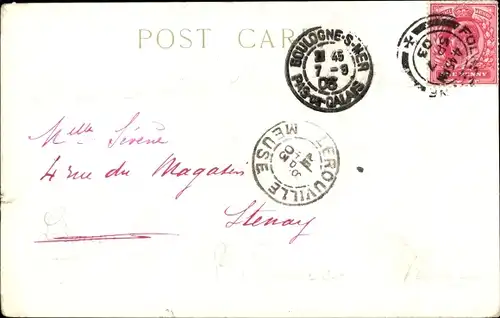 POST CARD
BOULOGNE-S-MER
21 45
7 - 9
03
PAS-DE-CALAIS
FOL NE
SP 7
03
PENNY
LEROUVILLE
MEUSE
Melle Sirène
4 rue du Magasin
Stenay